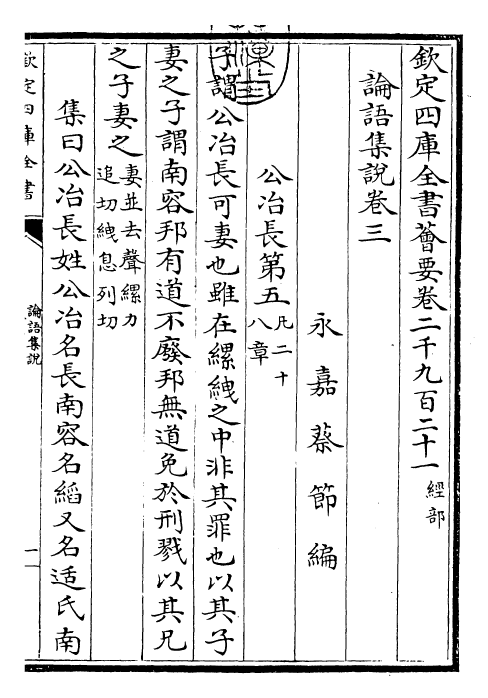 欽定四庫全書薈要卷二千九百二十一 經部
論語集說卷三
永嘉蔡節編
公冶長第五 凡二十八章
子謂公冶長可妻也雖在縲絏之中非其罪也以其子
妻之子謂南容邦有道不廢邦無道免於刑戮以其兄
之子妻之 妻並去聲縲力追切絏息列切
集曰公冶長姓公冶名長南容名縚又名适氏南
欽定四庫全書
論語集說
一